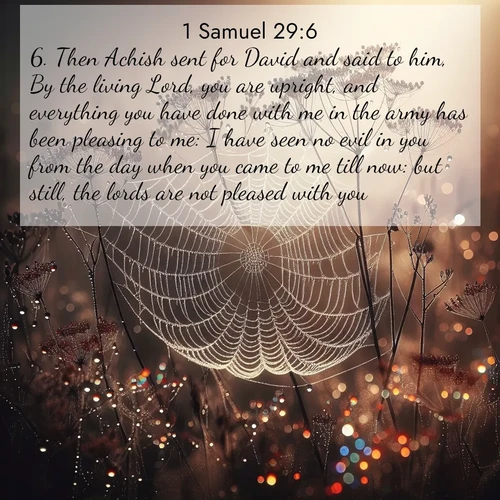 1 Samuel 29:6
6. Then Achish sent for David and said to him,
By the living Lord, you are upright, and
everything you have done with me in the army has
been pleasing to me: I have seen no evil in you
from the day when you came to me till now: but
still, the lords are not pleased with you